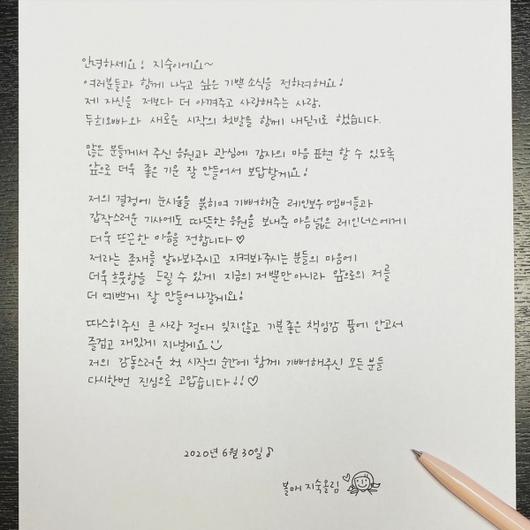 안녕하세요! 지숙이에요~
여러분들과 함께 나누고 싶은 기쁜 소식을 전하려해요!
제 자신을 저보다 더 아껴주고 사랑해주는 사람,
두희오빠와 새로운 시작의 첫발을 함께 내딛기로 했습니다.
많은 분들께서 주신 응원과 관심에 감사의 마음 표현 할 수 있도록
앞으로 더욱 좋은 기운 잘 만들어서 보답할게요!
저의 결정에 눈시울을 붉히며 기뻐해준 레인보우 멤버들과
갑작스러운 기사에도 따뜻한 응원을 보내준 마음 넓은 레인너스에게
더욱 뜨끈한 마음을 전합니다♡
저라는 존재를 알아봐주시고 지켜봐주시는 분들의 마음에
더욱 흐뭇함을 드릴 수 있게 지금의 저뿐만 아니라 앞으로의 저를
더 예쁘게 잘 만들어나갈게요!
따스히주신 큰 사랑 절대 잊지않고 기분좋은 책임감 품에 안고서
즐겁고 재밌게 지낼게요
저의 감동스러운 첫 시작의 순간에 함께 기뻐해주신 모든 분들
다시한번 진심으로 고맙습니다!!♡
2020년 6월 30일♪
지숙올림